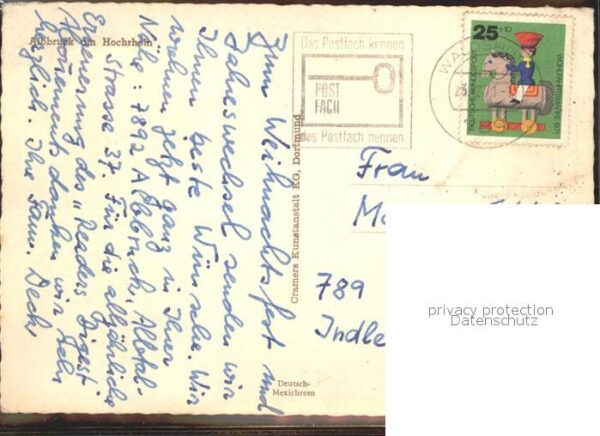 Albbruck am Hochrhein
Zum Weihnachtsfest und
Jahreswechsel senden wir
Ihnen beste Wünsche. Wir
wohnen jetzt ganz in Ihrer
Nähe: 7892 Albbruck, Albtal-
Strasse 37. Für die alljährliche
Erneuerung des "Readers Digest"
danken wir sehr
herzlich. Ihre Fam.
Cramers Kunstanstalt KG, Dortmund
Deutsch-
Mexichrom
Das Postfach kennen
POST
FACH
das Postfach nennen
WA
25+10
DEUTSCHE BUNDESPOST
WOHLFAHRTSMARKE 1971
Frau
789
privacy protection
Datenschutz